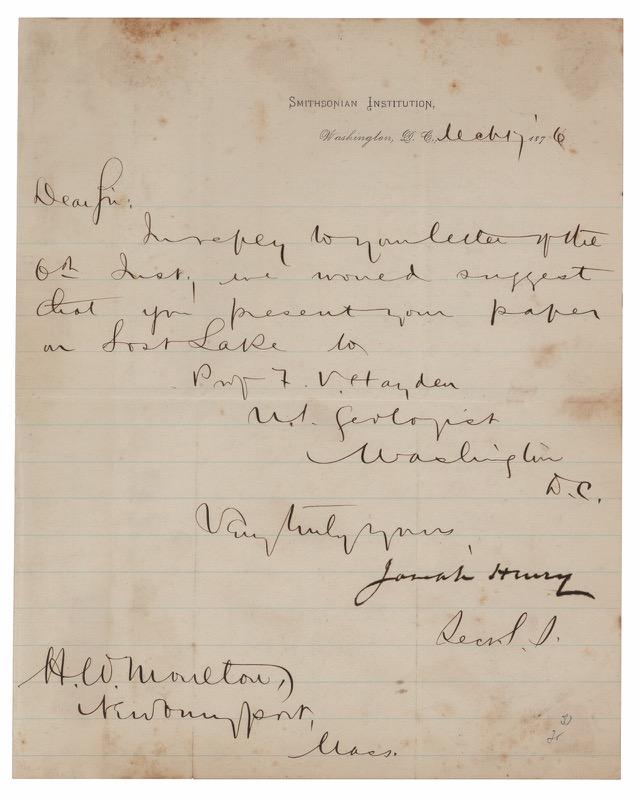 Smithsonian Institution,
Washington, D. C., Mch 17, 1876
Dear Sir:
In reply to your letter of the
6th Inst., we would suggest
that you present your paper
on Lost Lake to
Prof F. V. Hayden
U.S. Geologist
Washington
D.C.
Very truly yours,
Joseph Henry
Secr. S. I.
H. W. Moulton,
Newburyport,
Mass.